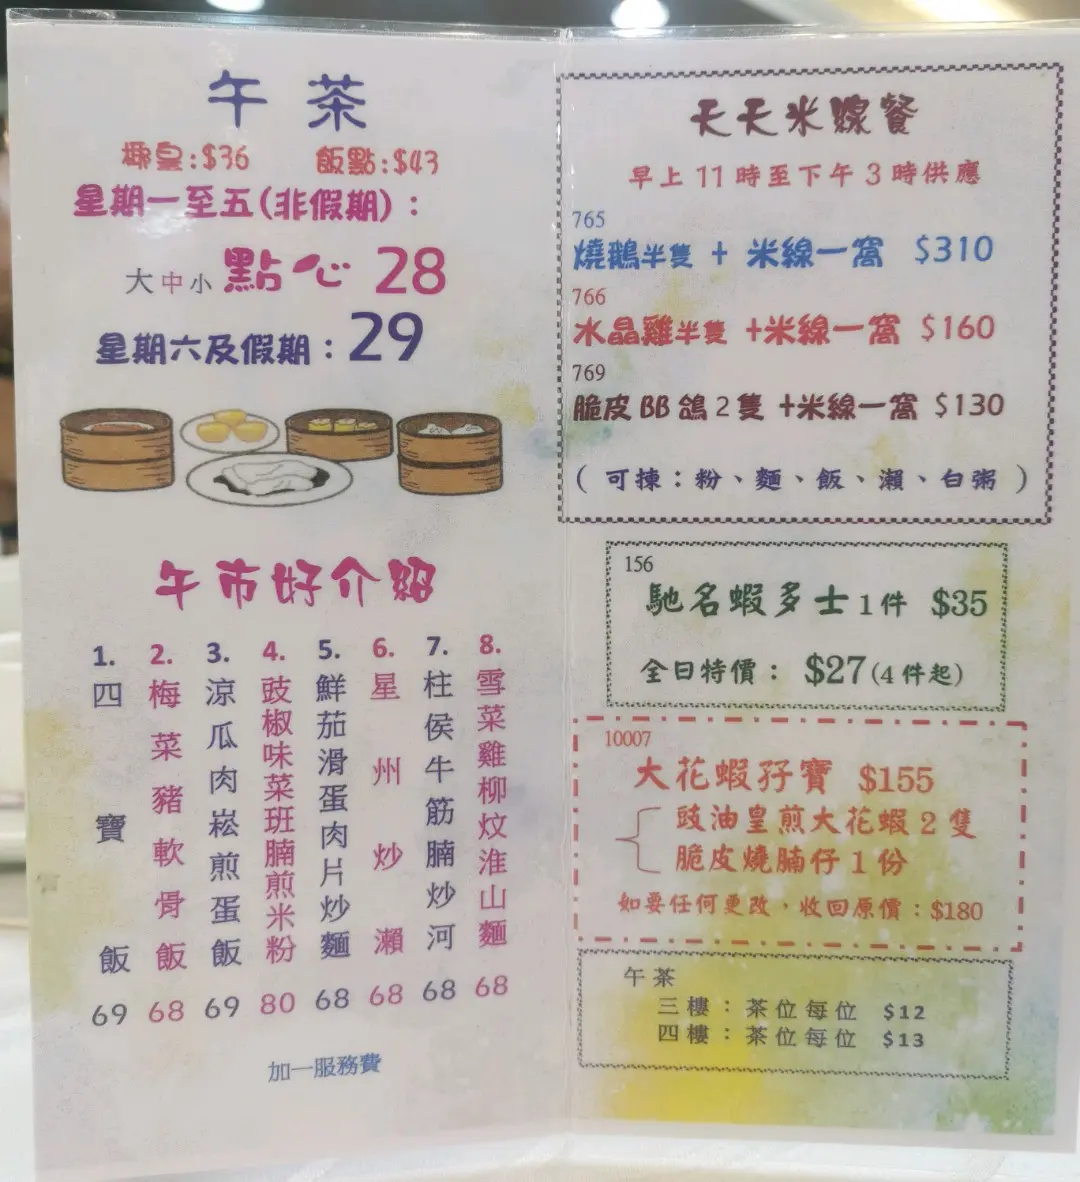 午茶
椰皇:$36 飯點:$43
星期一至五(非假期)：
大中小點心 28
星期六及假期：29
午市好介紹
1. 四寶飯 69
2. 梅菜豬軟骨飯 68
3. 涼瓜肉崧煎蛋飯 69
4. 豉椒味菜班腩煎米粉 80
5. 鮮茄滑蛋肉片炒麵 68
6. 星州炒瀨 68
7. 柱侯牛筋腩炒河 68
8. 雪菜雞柳炆淮山麵 68
加一服務費
天天米線餐
早上 11 時至下午 3 時供應
765
燒鵝半隻 + 米線一窩 $310
766
水晶雞半隻 +米線一窩 $160
769
脆皮 BB 鴿 2 隻 +米線一窩 $130
( 可揀：粉、麵、飯、瀨、白粥 )
156
馳名蝦多士 1 件 $35
全日特價： $27(4 件起)
10007
大花蝦孖寶 $155
豉油皇煎大花蝦 2 隻
脆皮燒腩仔 1 份
如要任何更改，收回原價：$180
午茶
三樓：茶位每位 $12
四樓：茶位每位 $13